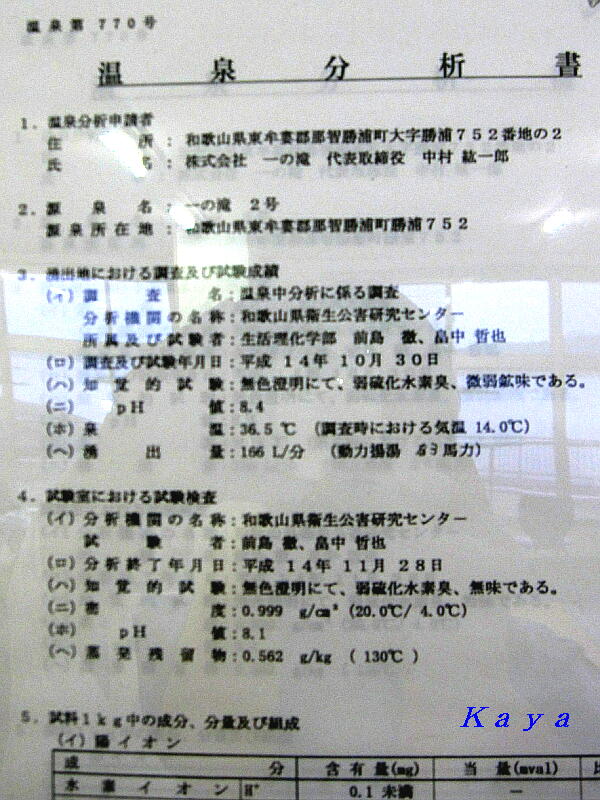 温泉第 770号
温泉分析書
1．温泉分析申請者
住所：和歌山県東牟婁郡那智勝浦町大字勝浦７５２番地の２
氏名：株式会社 一の滝 代表取締役 中村 紘一郎
2．源泉名：一の滝 2号
源泉所在地：和歌山県東牟婁郡那智勝浦町勝浦７５２
3．湧出地における調査及び試験成績
(イ) 調査名：温泉中分析に係る調査
分析機関の名称：和歌山県衛生公害研究センター
所属及び試験者：生活理化学部 前島 徹、畠中 哲也
(ロ) 調査及び試験年月日：平成 14年 10月 30日
(ハ) 知覚的試験：無色澄明にて、弱硫化水素臭、微弱鉱味である。
(ニ) pH値：8.4
(ホ) 泉温：36.5 ℃ (調査時における気温 14.0℃)
(ヘ) 湧出量：166 L/分 (動力揚湯 馬力)
4．試験室における試験検査
(イ) 分析機関の名称：和歌山県衛生公害研究センター
試験者：前島 徹、畠中 哲也
(ロ) 分析終了年月日：平成 14年 11月 28日
(ハ) 知覚的試験：無色澄明にて、弱硫化水素臭、無味である。
(ニ) 密度：0.999 g/cm³ (20.0℃/ 4.0℃)
(ホ) pH値：8.1
(ヘ) 蒸発残留物：0.562 g/kg ( 130℃ )
5．試料１kg中の成分、分量及び組成
(イ) 陽イオン
成分 含有量(mg) 当量(mval)
水素イオン H⁺ 0.1 未満 ―
Kaya